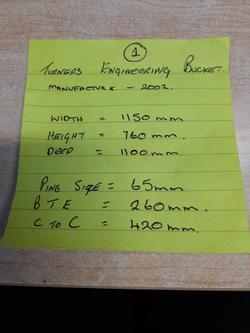 1
TURNERS ENGINEERING BUCKET.
MANUFACTURE - 2002.
WIDTH = 1150mm
HEIGHT = 760mm
DEEP = 1100mm
PING SIZE = 65mm
B T E = 260mm.
C TO C = 420mm.